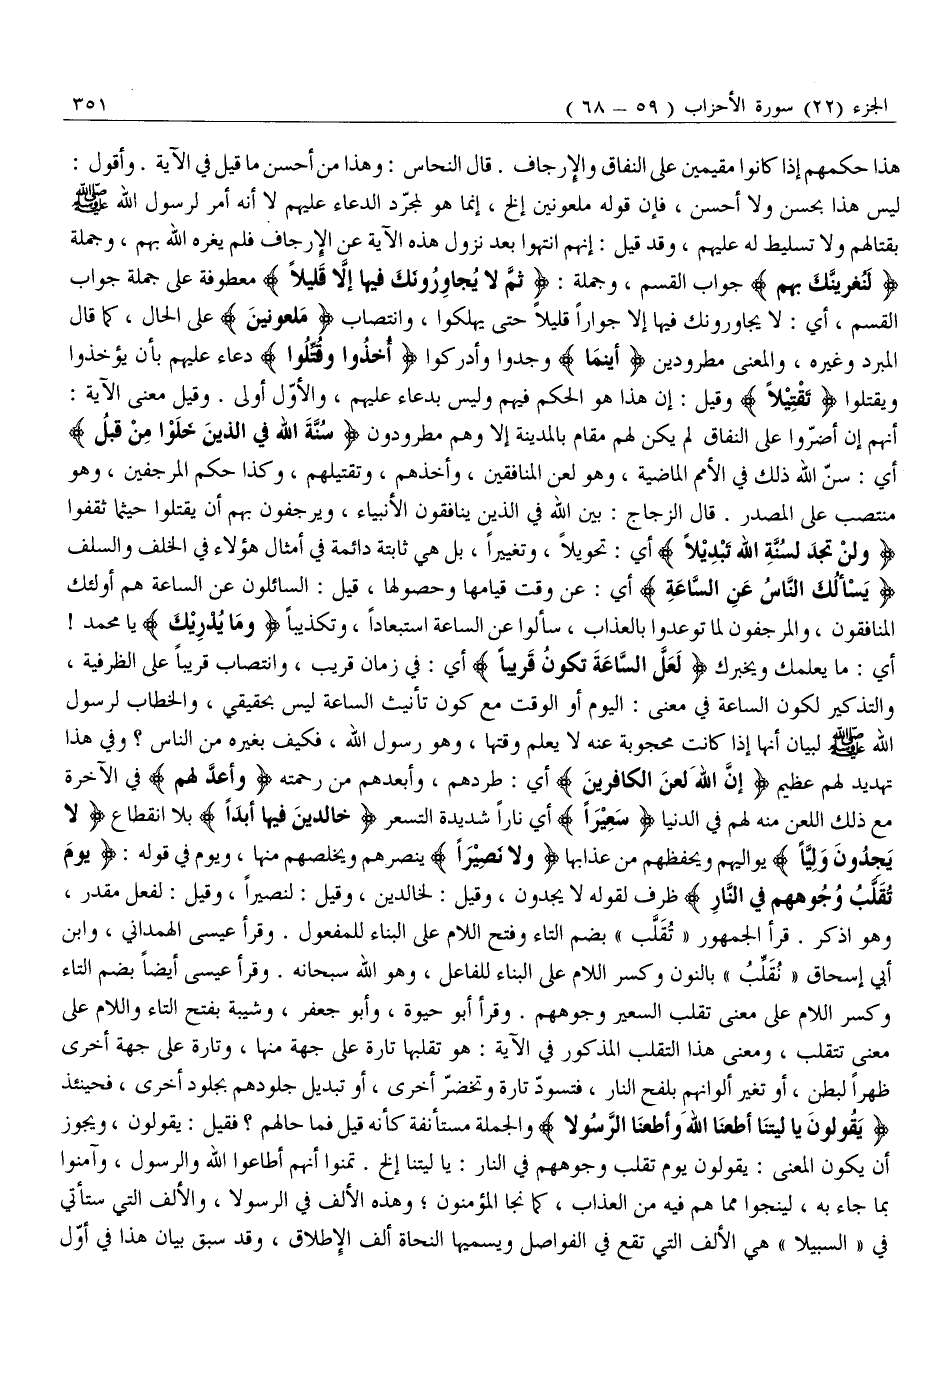 الجزء (٢٢) سورة الأحزاب ( ٥٩ – ٦٨ ) ٣٥١
هذا حكمهم إذا كانوا مقيمين على النفاق والإرجاف . قال النحاس : وهذا من أحسن ما قيل في الآية . وأقول :
ليس هذا بحسن ولا أحسن ، فإن قوله ملعونين إلخ ، إنما هو لمجرّد الدعاء عليهم لا أنه أمر لرسول الله ﷺ
بقتالهم ولا تسليط له عليهم ، وقد قيل : إنهم انتهوا بعد نزول هذه الآية عن الإرجاف فلم يغره الله بهم ، وجملة
﴿ لَنُغرينَّكَ بهم ﴾ جواب القسم ، وجملة : ﴿ ثمَّ لا يُجاوِرُونَكَ فيها إلَّا قَليلاً ﴾ معطوفة على جملة جواب
القسم ، أي : لا يجاورونك فيها إلا جواراً قليلاً حتى يهلكوا ، وانتصاب ﴿ مَلعونينَ ﴾ على الحال ، كما قال
المبرد وغيره ، والمعنى مطرودين ﴿ أينمَا ﴾ وجدوا وأدركوا ﴿ أُخذُوا وقُتِّلُوا ﴾ دعاء عليهم بأن يؤخذوا
ويقتلوا ﴿ تَقْتِيْلاً ﴾ وقيل : إن هذا هو الحكم فيهم وليس بدعاء عليهم ، والأوّل أولى . وقيل معنى الآية :
أنهم إن أصرّوا على النفاق لم يكن لهم مقام بالمدينة إلا وهم مطرودون ﴿ سُنَّةَ الله في الذينَ خَلَوْا مِنْ قبلُ ﴾
أي : سنّ الله ذلك في الأمم الماضية ، وهو لعن المنافقين ، وأخذهم ، وتقتيلهم ، وكذا حكم المرجفين ، وهو
منتصب على المصدر . قال الزجاج : بين الله في الذين ينافقون الأنبياء ، ويرجفون بهم أن يقتلوا حيثما ثقفوا
﴿ ولنْ تجدَ لسُنَّةِ الله تَبْدِيْلاً ﴾ أي : تحويلاً ، وتغييراً ، بل هي ثابتة دائمة في أمثال هؤلاء في الخلف والسلف
﴿ يَسْألُكَ النَّاسُ عَنِ السَّاعَةِ ﴾ أي : عن وقت قيامها وحصولها ، قيل : السائلون عن الساعة هم أولئك
المنافقون ، والمرجفون لما توعدوا بالعذاب ، سألوا عن الساعة استبعاداً ، وتكذيباً ﴿ ومَا يُدْرِيْكَ ﴾ يا محمد !
أي : ما يعلمك ويخبرك ﴿ لَعَلَّ السَّاعَةَ تكونُ قَريباً ﴾ أي : في زمان قريب ، وانتصاب قريباً على الظرفية ،
والتذكير لكون الساعة في معنى : اليوم أو الوقت مع كون تأنيث الساعة ليس بحقيقي ، والخطاب لرسول
الله ﷺ لبيان أنها إذا كانت محجوبة عنه لا يعلم وقتها ، وهو رسول الله ، فكيف بغيره من الناس ؟ وفي هذا
تهديد لهم عظيم ﴿ إنَّ اللهَ لَعنَ الكافرينَ ﴾ أي : طردهم ، وأبعدهم من رحمته ﴿ وأعدَّ لهم ﴾ في الآخرة
مع ذلك اللعن منه لهم في الدنيا ﴿ سَعِيْرَاً ﴾ أي ناراً شديدة التسعر ﴿ خالدينَ فيها أبدَاً ﴾ بلا انقطاع ﴿ لا
يَجِدُونَ وَليَّاً ﴾ يواليهم ويحفظهم من عذابها ﴿ ولا نَصِيْرَاً ﴾ ينصرهم ويخلصهم منها ، ويوم في قوله : ﴿ يومَ
تُقَلَّبُ وُجُوههم في النَّارِ ﴾ ظرف لقوله لا يجدون ، وقيل : لخالدين ، وقيل : لنصيراً ، وقيل : لفعل مقدر ،
وهو اذكر . قرأ الجمهور « تُقَلَّب » بضم التاء وفتح اللام على البناء للمفعول . وقرأ عيسى الهمداني ، وابن
أبي إسحاق « نُقَلِّبُ » بالنون وكسر اللام على البناء للفاعل ، وهو الله سبحانه . وقرأ عيسى أيضاً بضم التاء
وكسر اللام على معنى تقلب السعير وجوههم . وقرأ أبو حيوة ، وأبو جعفر ، وشيبة بفتح التاء واللام على
معنى تتقلب ، ومعنى هذا التقلب المذكور في الآية : هو تقلبها تارة على جهة منها ، وتارة على جهة أخرى
ظهراً لبطن ، أو تغير ألوانهم بلفح النار ، فتسودّ تارة وتخضرّ أخرى ، أو تبديل جلودهم بجلود أخرى ، فحينئذ
﴿ يَقُولونَ يا ليتنَا أطعنَا اللهَ وأطعنَا الرَّسُولا ﴾ والجملة مستأنفة كأنه قيل فما حالهم ؟ فقيل : يقولون ، ويجوز
أن يكون المعنى : يقولون يوم تقلب وجوههم في النار : يا ليتنا إلخ . تمنوا أنهم أطاعوا الله والرسول ، وآمنوا
بما جاء به ، لينجوا مما هم فيه من العذاب ، كما نجا المؤمنون ؛ وهذه الألف في الرسولا ، والألف التي ستأتي
في « السبيلا » هي الألف التي تقع في الفواصل ويسميها النحاة ألف الإطلاق ، وقد سبق بيان هذا في أوّل